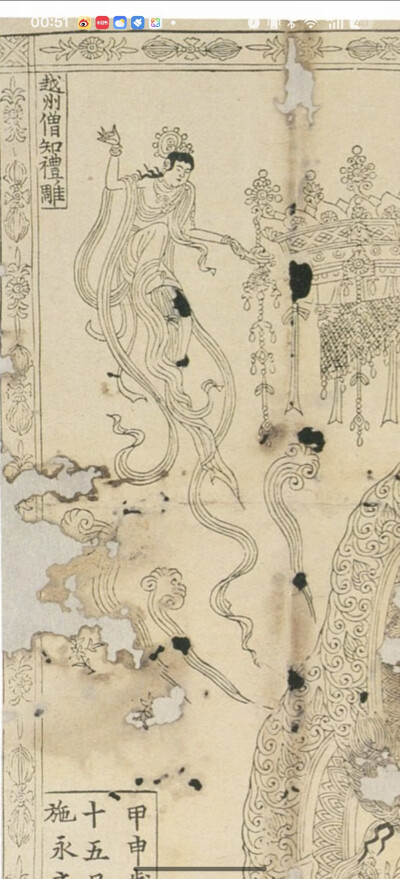 00:51
越州僧知禮雕
甲申歲
十五日
施永